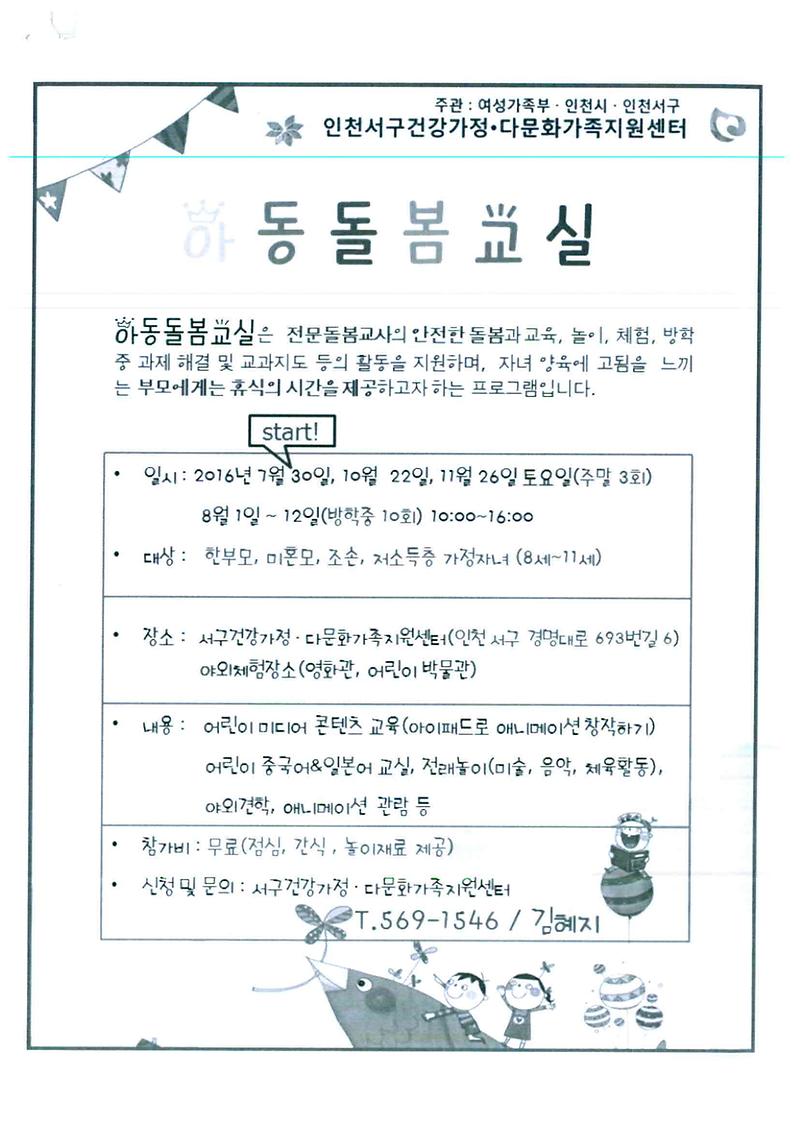 주관 : 여성가족부 · 인천시 · 인천서구
인천서구건강가정•다문화가족지원센터
아동돌봄교실
아동돌봄교실은 전문돌봄교사의 안전한 돌봄과 교육, 놀이, 체험, 방학
중 과제 해결 및 교과지도 등의 활동을 지원하며, 자녀 양육에 고됨을 느끼
는 부모에게는 휴식의 시간을 제공하고자 하는 프로그램입니다.
start!
• 일시 : 2016년 7월 30일, 10월 22일, 11월 26일 토요일(주말 3회)
8월 1일 ~ 12일(방학중 10회) 10:00~16:00
• 대상 : 한부모, 미혼모, 조손, 저소득층 가정자녀 (8세~11세)
• 장소 : 서구건강가정 · 다문화가족지원센터(인천 서구 경명대로 693번길 6)
야외체험장소(영화관, 어린이 박물관)
• 내용 : 어린이 미디어 콘텐츠 교육(아이패드로 애니메이션 창작하기)
어린이 중국어&일본어 교실, 전래놀이(미술, 음악, 체육활동),
야외견학, 애니메이션 관람 등
• 참가비 : 무료(점심, 간식 , 놀이재료 제공)
• 신청 및 문의 : 서구건강가정 · 다문화가족지원센터
T.569-1546 / 김혜지